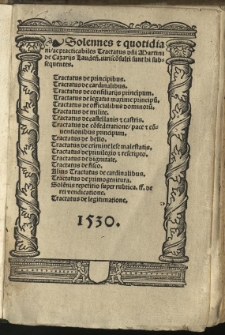 Solennes et quotidia
ni ac practicabiles Tractatus dñi Martini
de Cazariis Laudeñ. iuriscõsulti sunt hi sub-
sequentes.
Tractatus de principibus.
Tractatus de cardinalibus.
Tractatus de consiliariis principum.
Tractatus de legatis maxime principũ.
Tractatus de officialibus dominorũ.
Tractatus de milite.
Tractatus de castellanis et castris.
Tractatus de cõfederatione: pace et cõ-
uentionibus principum.
Tractatus de bello.
Tractatus de crimine lese maiestatis.
Tractatus de priuilegiis et rescriptis.
Tractatus de dignitate.
Tractatus de fisco.
Alius Tractatus de cardinalibus.
Tractatus de primogenitura.
Solẽnis repetitio super rubrica. ff. de
rei vendicatione.
Tractatus de legitimatione.
1530.